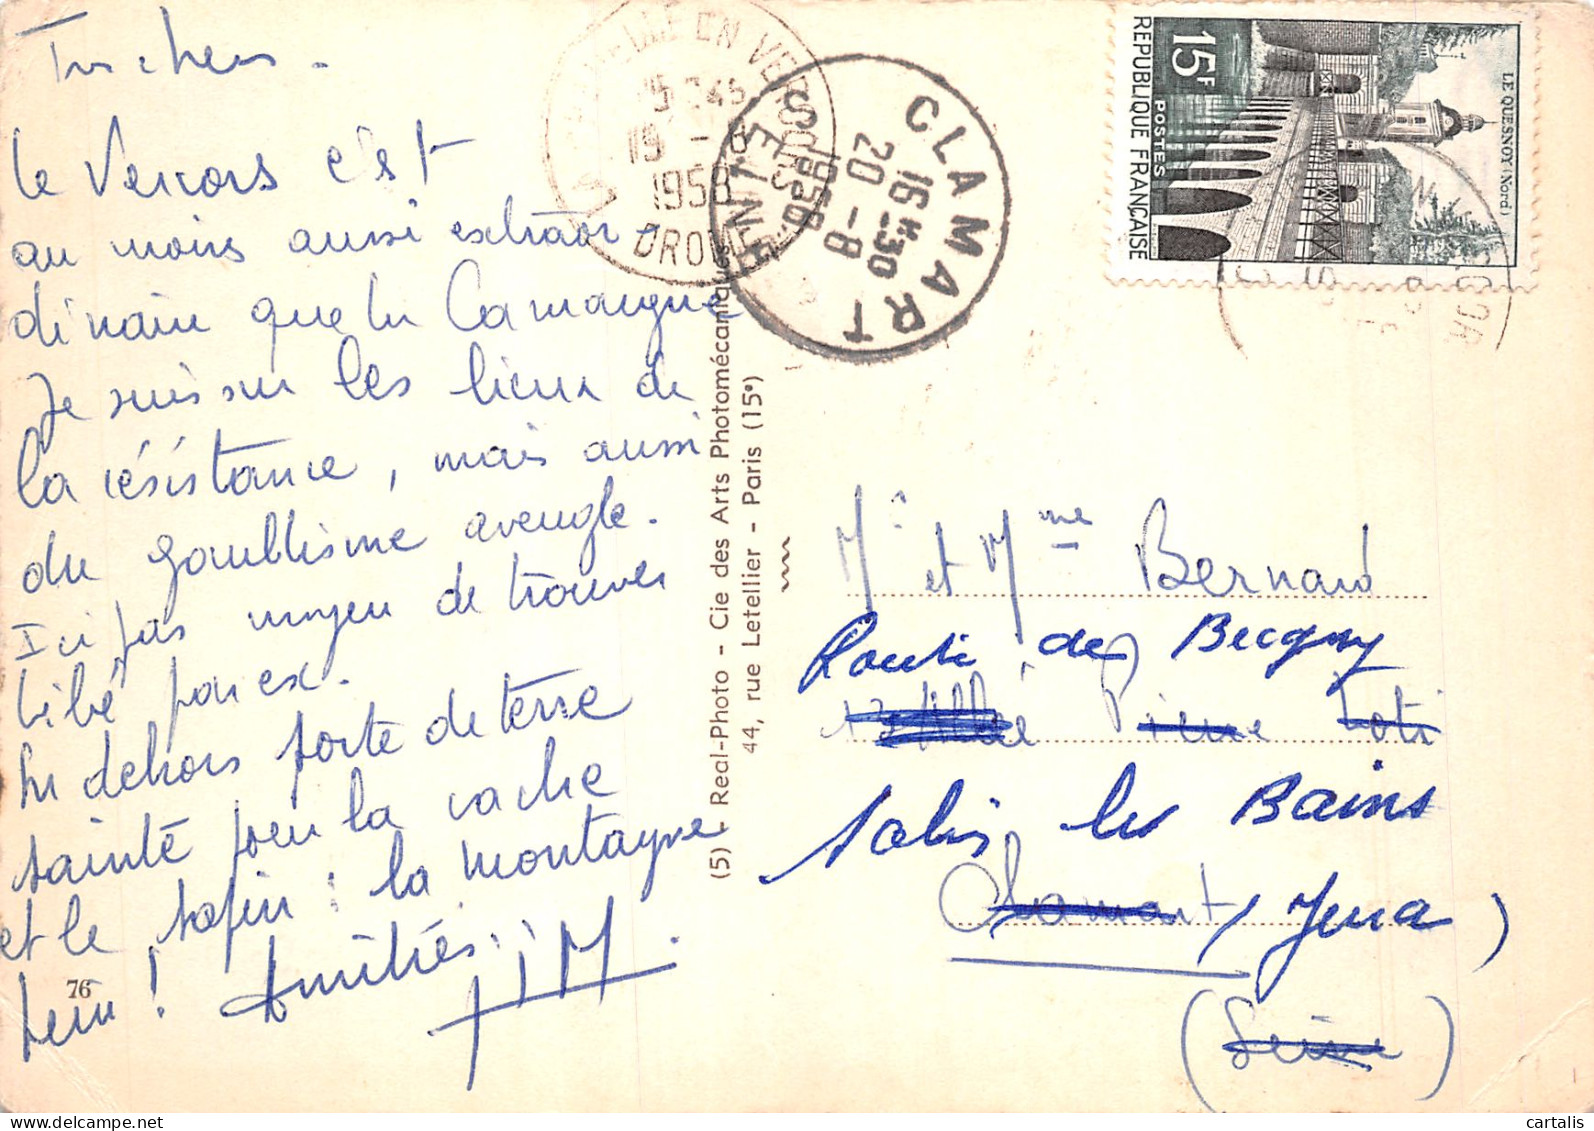 Très chers.
Le Vercors c'est
au moins aussi extraor-
dinaire que la Camargue
Je suis sur les lieux de
la résistance, mais aussi
du gaullisme aveugle.
Ici pas moyen de trouver
bibé par ex.
dehors porte de terre
sainté pour la vache
et le sapin : la montagne
! Amitiés. JM.
76
LA CHAPELLE EN VERCORS
19 - 8
1958
DROME
CLAMART
16H30
20 - 8
1958
SEINE
REPUBLIQUE FRANÇAISE
15F
POSTES
LE QUESNOY (Nord)
(5) - Real-Photo - Cie des Arts Photomécaniques
44, rue Letellier - Paris (15e)
Mr et Mme Bernard
Route de Bregny
Pierre Loti
Salis les Bains
Clamart Jura)
(Seine)
cartalis.com